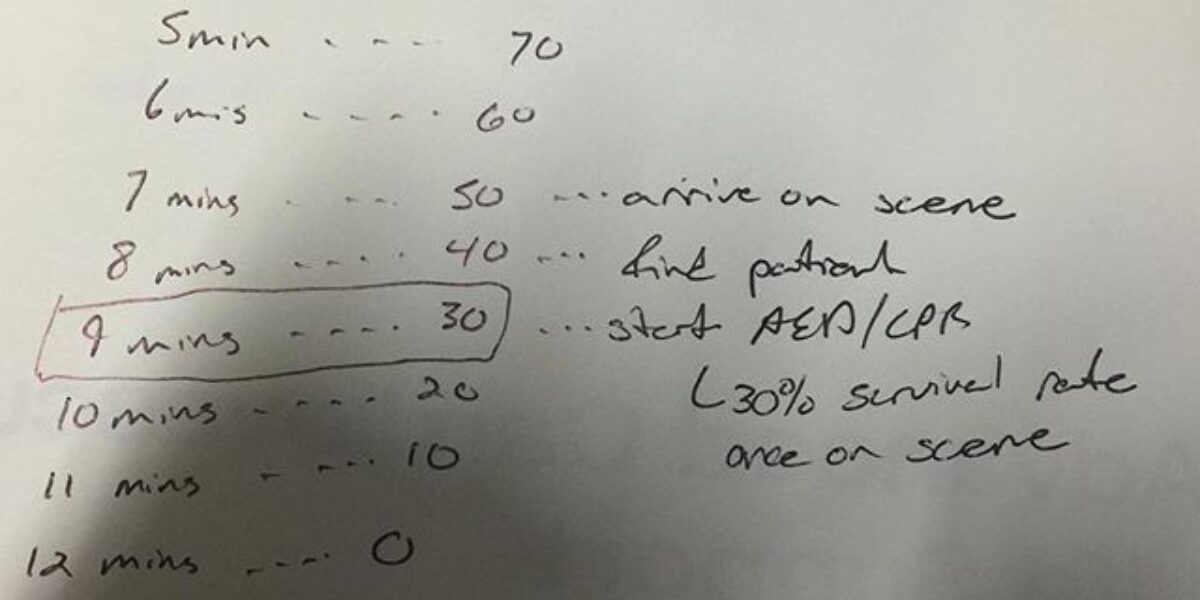 5min .... 70
6 mis ..... 60
7 mins .... 50 ... arrive on scene
8 mins ..... 40 ... find patient
9 mins ..... 30 ... start AED/CPR
10 mins ..... 20 30% survival rate
11 mins ..... 10 once on scene
12 mins .... 0